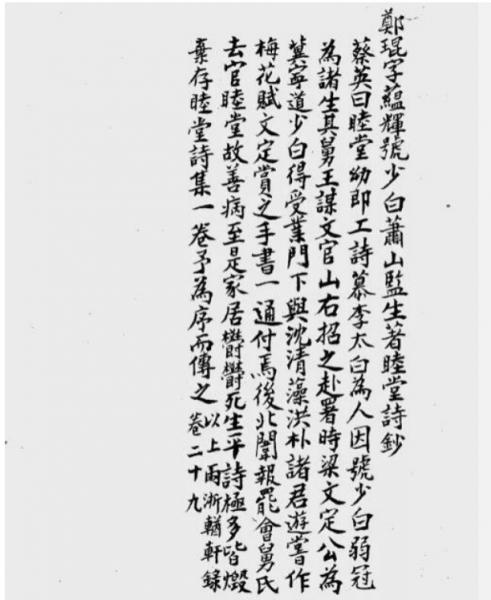 鄭琨字蘊輝號少白蕭山監生著睦堂詩鈔
蔡英曰睦堂幼即工詩慕李太白為人因號少白弱冠
為諸生其舅王謀文官山右招之赴署時梁文定公為
冀寧道少白得受業門下與沈清藻洪朴諸君遊嘗作
梅花賦文定賞之手書一通付焉後北闈報罷會舅氏
去官睦堂故善病至是家居鬱鬱死生平詩極多皆燬
棄存睦堂詩集一卷予為序而傳之以上兩浙輶軒錄卷二十九